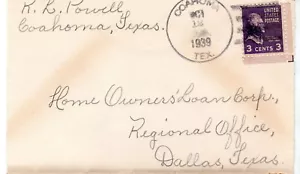 R. L. Powell
Coahoma, Texas.
COAHOMA
1939
TEX.
UNITED STATES
POSTAGE
3 CENTS 3
Home Owners' Loan Corp.,
Regional Office,
Dallas, Texas.